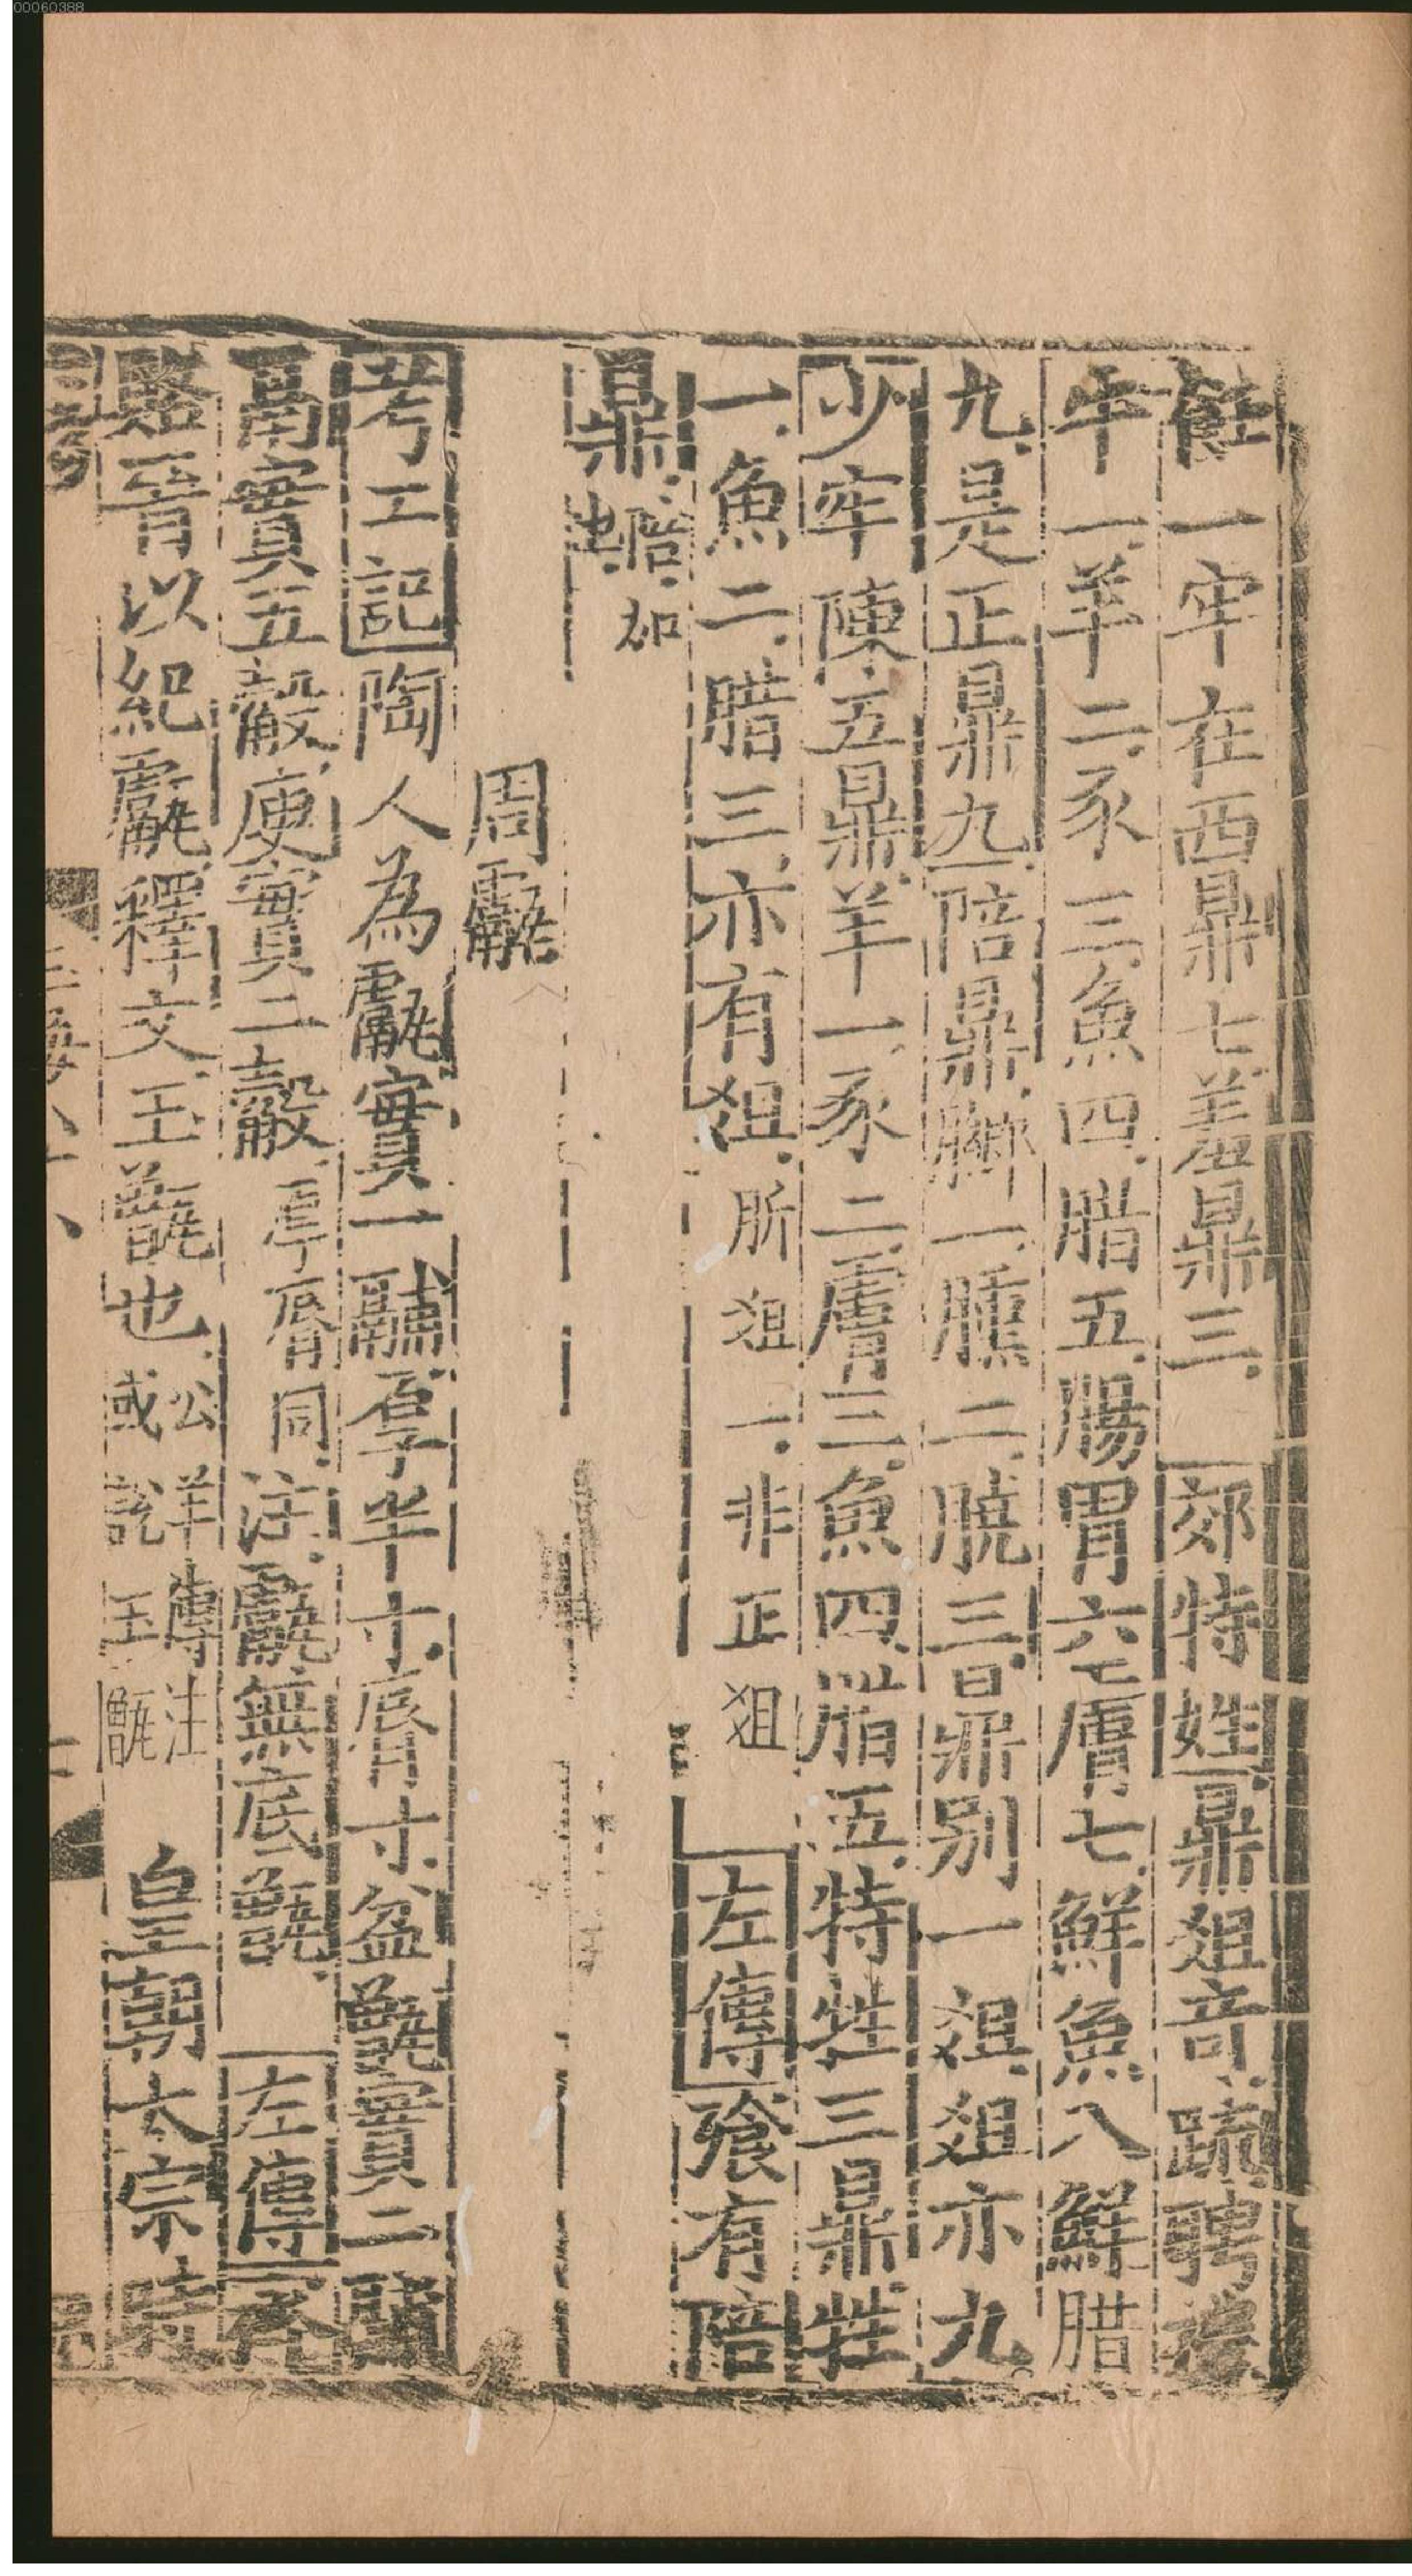 00060388
飪一牢在西鼎七羞鼎三郊特姓鼎俎奇疏聘禮
牛一羊二豕三魚四腊五腸胃六膚七鮮魚八鮮腊
九是正鼎九陪鼎膷一臐二膮三鼎别一俎俎亦九
少牢陳五鼎羊一豕二膚三魚四腊五特牲三鼎牲
一魚二腊三亦有俎肵俎一非正俎左傳飱有陪
鼎陪加
周甗
考工記陶人為甗實一鬴厚半寸唇寸盆甑實二鬴
鬲實五觳庾實二觳厚唇同注甗無底甑左傳齊
賂晉以紀甗釋文玉甑也公羊傳注
或說玉甑皇朝太宗時